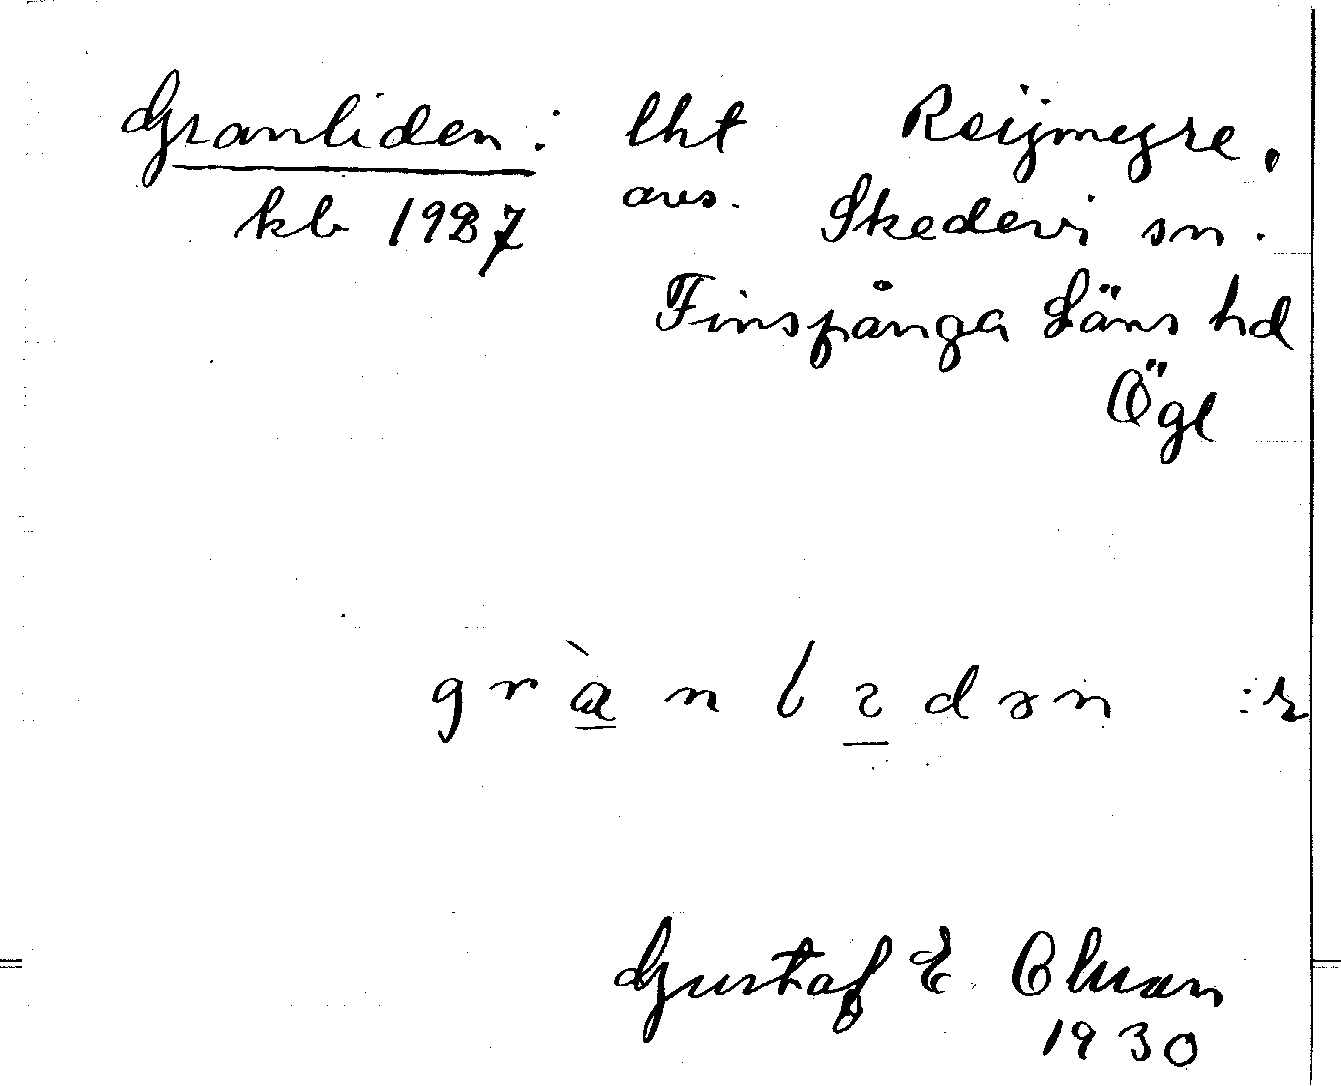 Granliden: lht Reijmyre,
kb 1927 avs. Skedevi sn.
Finspånga Läns hd
Ögl
Gustaf E.
1930